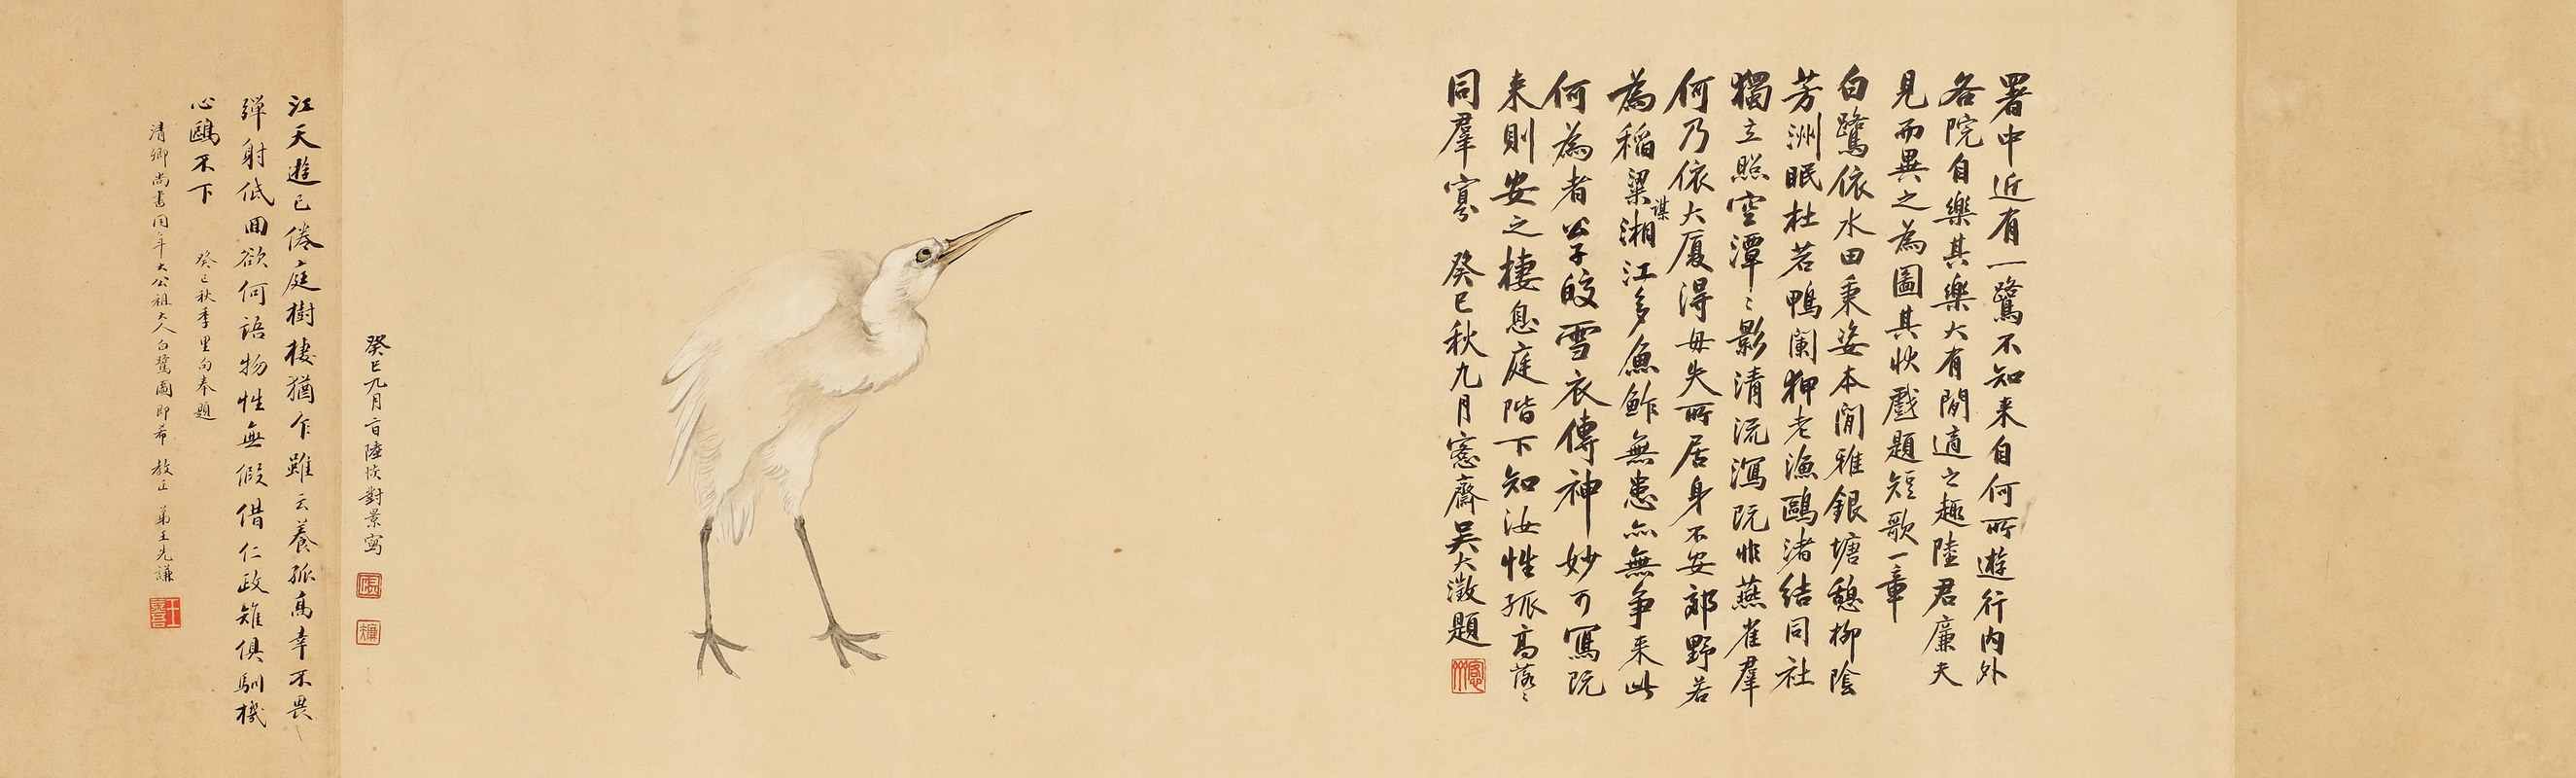 署中近有一鷺不知来自何所遊行内外
各院自樂其樂大有閒適之趣陸君廉夫
見而異之為圖其狀戲題短歌一章
白鷺依水田秉姿本閒雅銀塘憩柳陰
芳洲眠杜若鴨闌狎老漁鷗渚結同社
獨立照空潭〻影清流瀉既非燕雀羣
何乃依大廈得毋失所居身不安郊野若
為稻粱謀湘江多魚鮓無患亦無争来此
何為者公子皎雪衣傳神妙可寫既
来則安之棲息庭階下知汝性孤高落〻
同羣寡 癸巳秋九月窓齋吳大澂題
癸巳九月二日陸恢對景寫
江天遊已倦庭樹棲猶乍雖云養孤高幸不畏
弹射低回欲何語物性無假借仁政雉俱馴機
心鷗不下 癸巳秋季里句奉題
清卿尚書同年大公祖大人白鷺圖即希 教正 弟王先謙